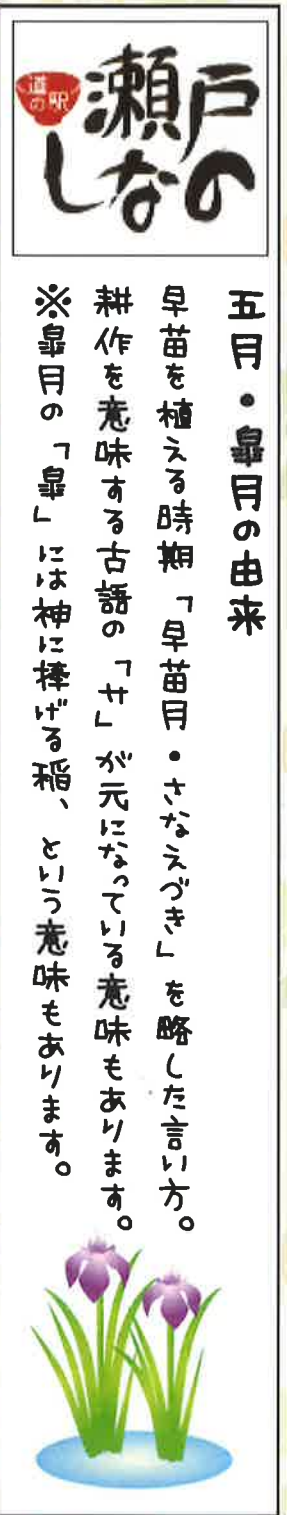 道の駅
瀬戸
しなの
五月・皐月の由来
早苗を植える時期「早苗月・さなえづき」を略した言い方。
耕作を意味する古語の「サ」が元になっている意味もあります。
※皐月の「皐」には神に捧げる稲、という意味もあります。